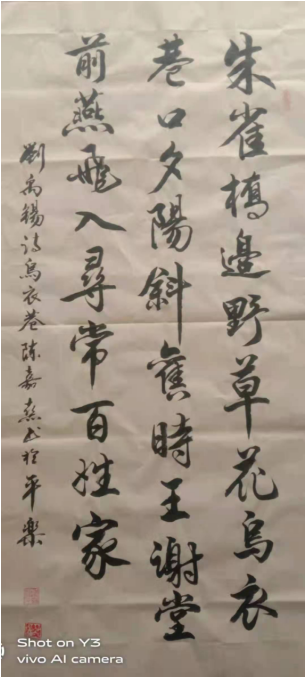 朱雀橋邊野草花烏衣
巷口夕陽斜舊時王謝堂
前燕飛入尋常百姓家
劉禹錫詩烏衣巷陳嘉燕書於平樂
Shot on Y3
vivo AI camera